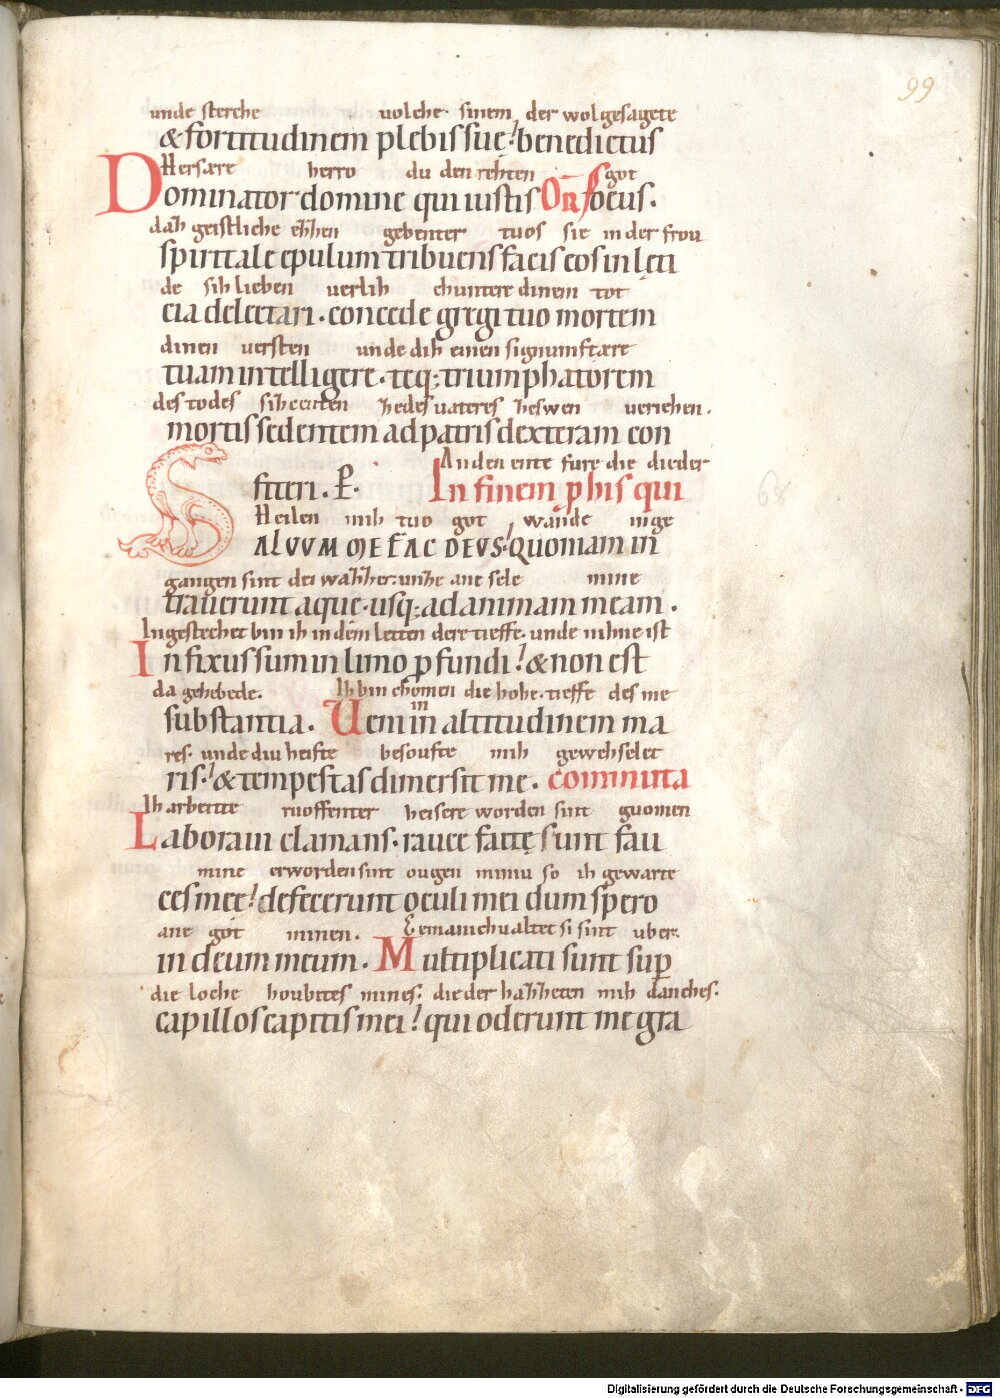 99
unde sterche uolches sinem der wolgesagete
& fortitudinem plebis suę! benedictus
Hersare herro du den rehten got
Dominator domine qui iustis Or̄ focus.
daz geistliche ezzen gebenter tuos sie in der frou
spiritale epulum tribuens facis eos in lęti
de sih lieben uerlih chuntere dinem tot
cia delectari. concede gregi tuo mortem
dinen uersten unde dih einen signumftære
tuam intelligere. teq; triumphatorem
des todes zeswen ueriehen.
mortis sedentem ad patris dexteram con
An den ente fure die dieder
fiteri. P. In finem p his qui
Heilen mih tuo got wande inge
SALVVM ME FAC DEVS. Quoniam in
gangen sint dei wazzer. unze ane sele mine
trauerunt aque. usq; ad animam meam.
Ingestechet bin ih in dem letten dere tieffe. unde nih ne ist
Infixus sum in limo pfundi! & non est
da gehebede. Ih bin chomen die hohe. tieffe des me
substantia. Ueni in altitudinem ma
res. unde diu heifte besoufte mih gewehselet
ris! & tempestas dimersit me. commuta
Ih arbeitte ruoffenter heisere worden sint guomen
Laboraui clamans. rauce factę sunt fau
mine erworden sint ougen miniu so ih gewarte
ces meę! defecerunt oculi mei dum spero
ane got minen. Gemanichualtet si sint uber.
in deum meum. Multiplicati sunt sup
die loche houbetes mines. die der hazzeten mih danches.
capillos capitis mei! qui oderunt me gra
Digitalisierung gefördert durch die Deutsche Forschungsgemeinschaft - DFG